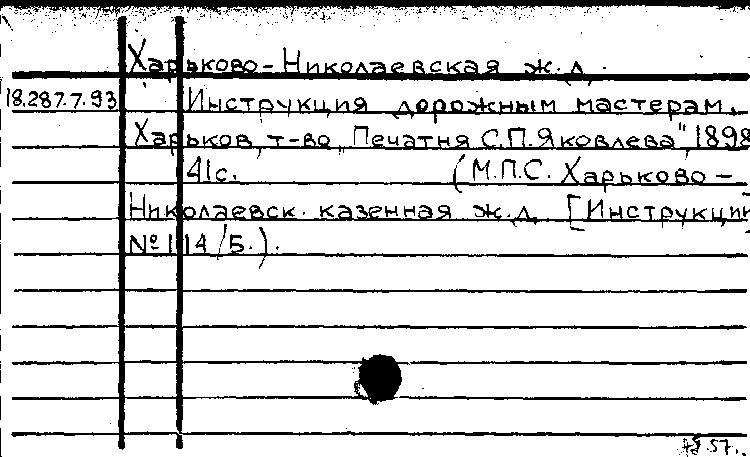 Харьково-Николаевская ж.д.
18.287.7.93 Инструкция дорожным мастерам.
Харьков, т-во „Печатня С.П.Яковлева", 1898
41с. (М.П.С. Харьково-
Николаевск. казенная ж.д. [Инструкции
№ 114/Б.).
57.